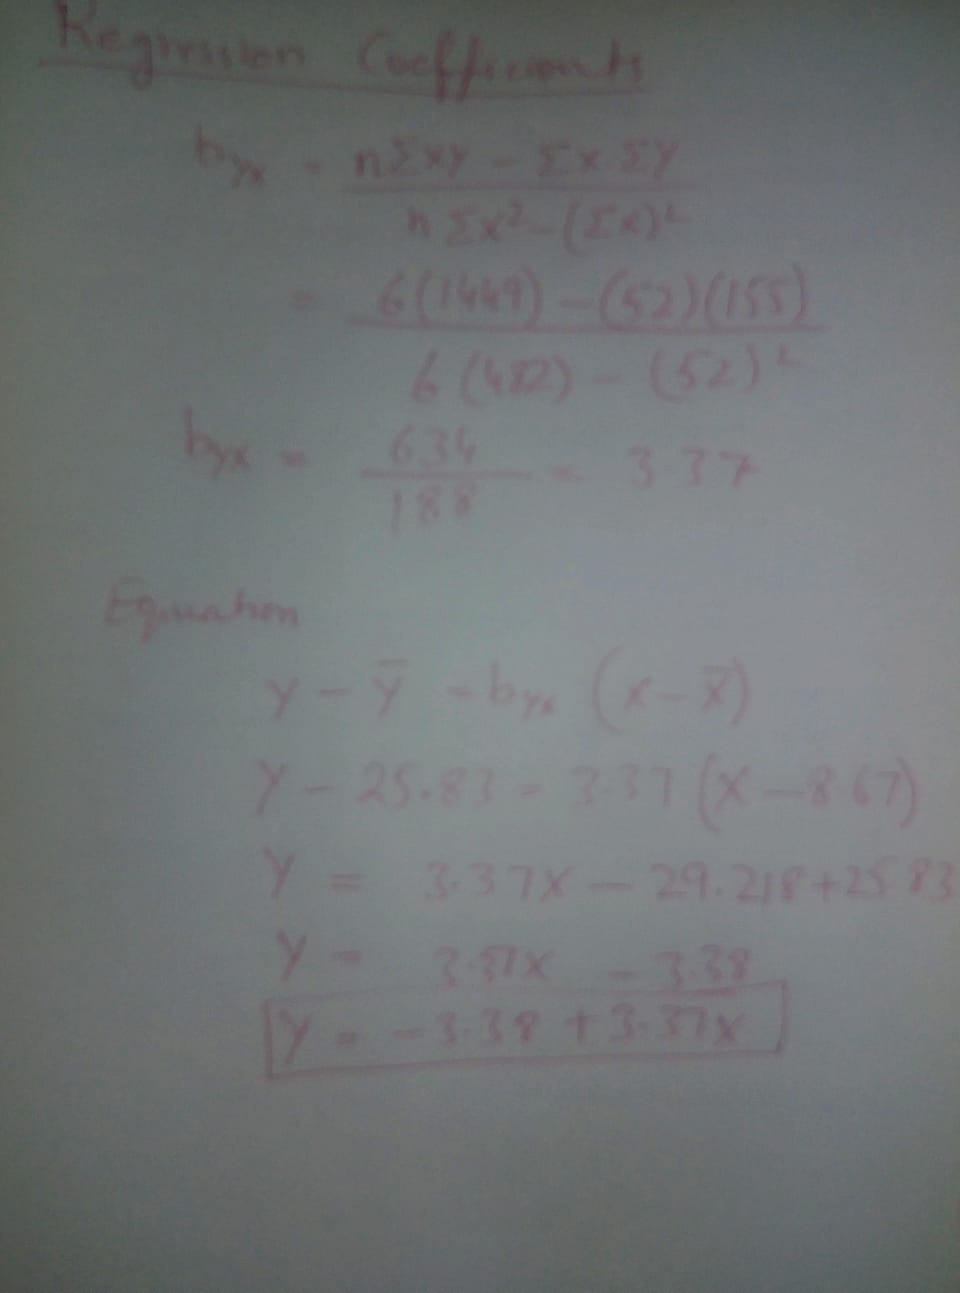 Regression Coefficients
byx = nΣxy - Σx Σy
nΣx² - (Σx)²
= 6(1449) - (52)(155)
6(482) - (52)²
byx = 634 = 3.37
188
Equation
y - ȳ = byx (x - x̄)
y - 25.83 = 3.37 (x - 8.67)
y = 3.37x - 29.218 + 25.83
y = 3.37x - 3.38
y = -3.38 + 3.37x